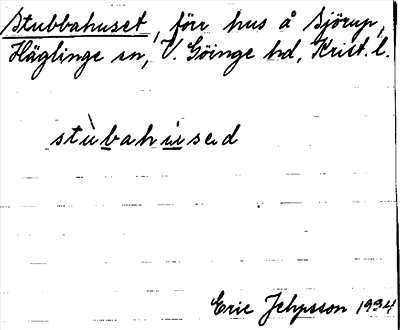 Stubbahuset, förr hus å Björup,
Häglinge sn, V. Göinge hd, Krist. l.
stùbahúsed
Eric Jepsson 1934